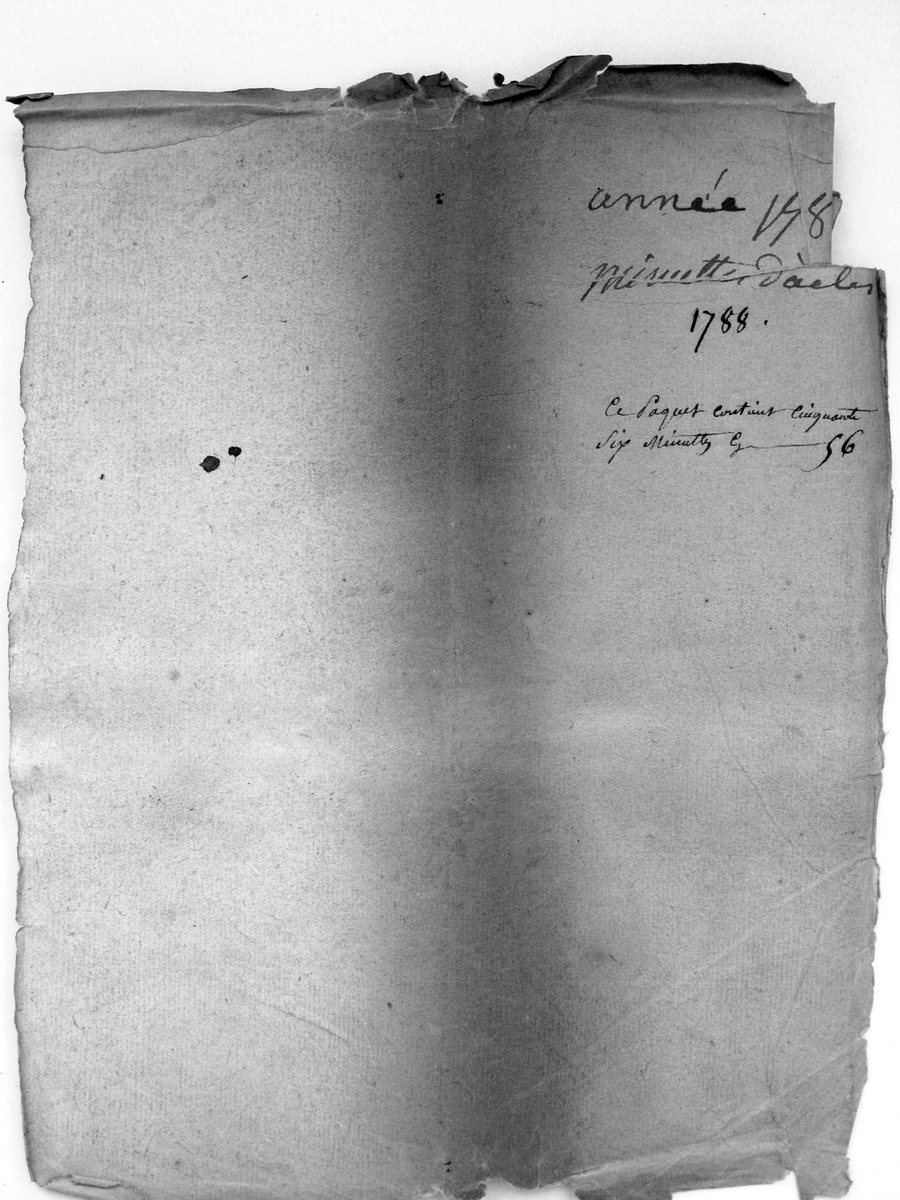 année 178
minuttes d'actes
1788.
Ce Paquet contient Cinquante
Six Minuttes Cy 56